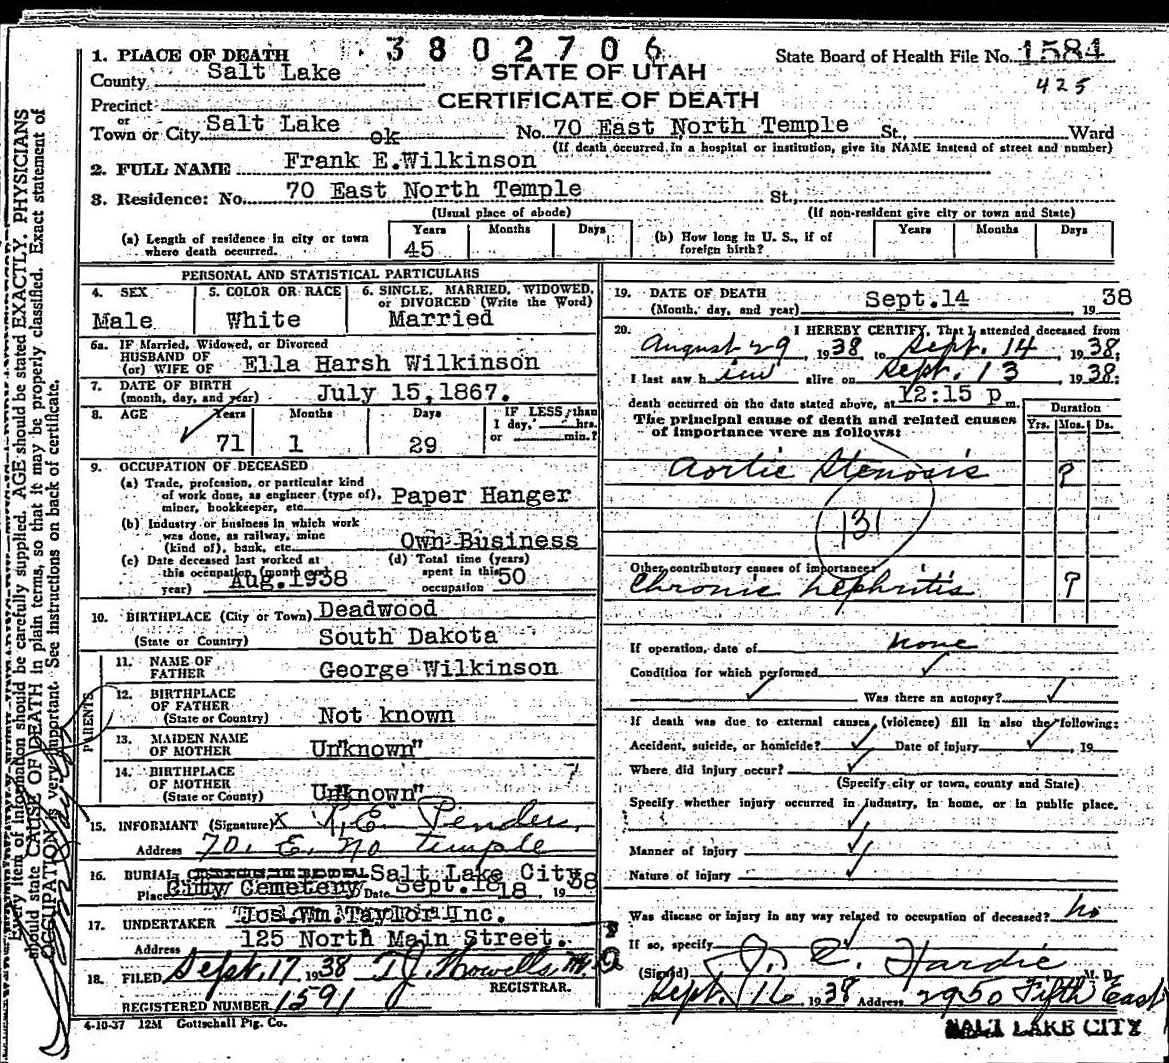 3802706
1. PLACE OF DEATH
State Board of Health File No. 1584
425
County Salt Lake
STATE OF UTAH
CERTIFICATE OF DEATH
Precinct
or
Town or City Salt Lake ok No. 70 East North Temple St., Ward
(If death occurred in a hospital or institution, give its NAME instead of street and number)
2. FULL NAME Frank E.Wilkinson
3. Residence: No. 70 East North Temple St.,
(Usual place of abode) (If non-resident give city or town and State)
(a) Length of residence in city or town where death occurred. Years 45 Months Days
(b) How long in U. S., if of foreign birth? Years Months Days
PERSONAL AND STATISTICAL PARTICULARS
4. SEX Male
5. COLOR OR RACE White
6. SINGLE, MARRIED, WIDOWED, or DIVORCED (Write the Word) Married
6a. IF Married, Widowed, or Divorced
HUSBAND OF
(or) WIFE OF Ella Harsh Wilkinson
7. DATE OF BIRTH
(month, day, and year) July 15,1867.
8. AGE Years 71 Months 1 Days 29 IF LESS than 1 day, hrs. or min.?
9. OCCUPATION OF DECEASED
(a) Trade, profession, or particular kind
of work done, as engineer (type of),
miner, bookkeeper, etc. Paper Hanger
(b) Industry or business in which work
was done, as railway, mine
(kind of), bank, etc. Own Business
(c) Date deceased last worked at
this occupation (month and
year) Aug.1938
(d) Total time (years)
spent in this
occupation 50
10. BIRTHPLACE (City or Town) Deadwood
(State or Country) South Dakota
PARENTS
11. NAME OF
FATHER George Wilkinson
12. BIRTHPLACE
OF FATHER
(State or Country) Not known
13. MAIDEN NAME
OF MOTHER Un"known"
14. BIRTHPLACE
OF MOTHER
(State or Country) Unknown"
15. INFORMANT (Signature) x R.E. Penders
Address 70. E. No Temple
16. BURIAL Salt Lake City
Place City Cemetery Date Sept.18 18 1938
17. UNDERTAKER Jos.Wm.Taylor Inc.
Address 125 North Main Street.
18. FILED Sept. 17 1938 T.J. Howells, M.D.
REGISTRAR.
REGISTERED NUMBER 1591
4-10-37 12M Gottschall Ptg. Co.
19. DATE OF DEATH
(Month, day, and year) Sept.14, 1938
20. I HEREBY CERTIFY, That I attended deceased from
August 29 1938 to Sept. 14, 1938;
I last saw him alive on Sept. 13 1938:
death occurred on the date stated above, at 12:15 p m.
The principal cause of death and related causes
of importance were as follows:
Duration
Yrs. Mos. Ds.
Aortic Stenosis ?
(131)
Other contributory causes of importance:
Chronic nephritis ?
If operation, date of none
Condition for which performed
Was there an autopsy?
If death was due to external causes (violence) fill in also the following:
Accident, suicide, or homicide? Date of injury , 19
Where did injury occur?
(Specify city or town, county and State)
Specify whether injury occurred in industry, in home, or in public place.
Manner of injury
Nature of injury
Was disease or injury in any way related to occupation of deceased? No
If so, specify
(Signed) J. E. Hardie M. D.
Sept. 16 1938 Address 2950 Fifth East
SALT LAKE CITY
Every item of information should be carefully supplied. AGE should be stated EXACTLY. PHYSICIANS
should state CAUSE OF DEATH in plain terms, so that it may be properly classified. Exact statement of
OCCUPATION is very important. See instructions on back of certificate.